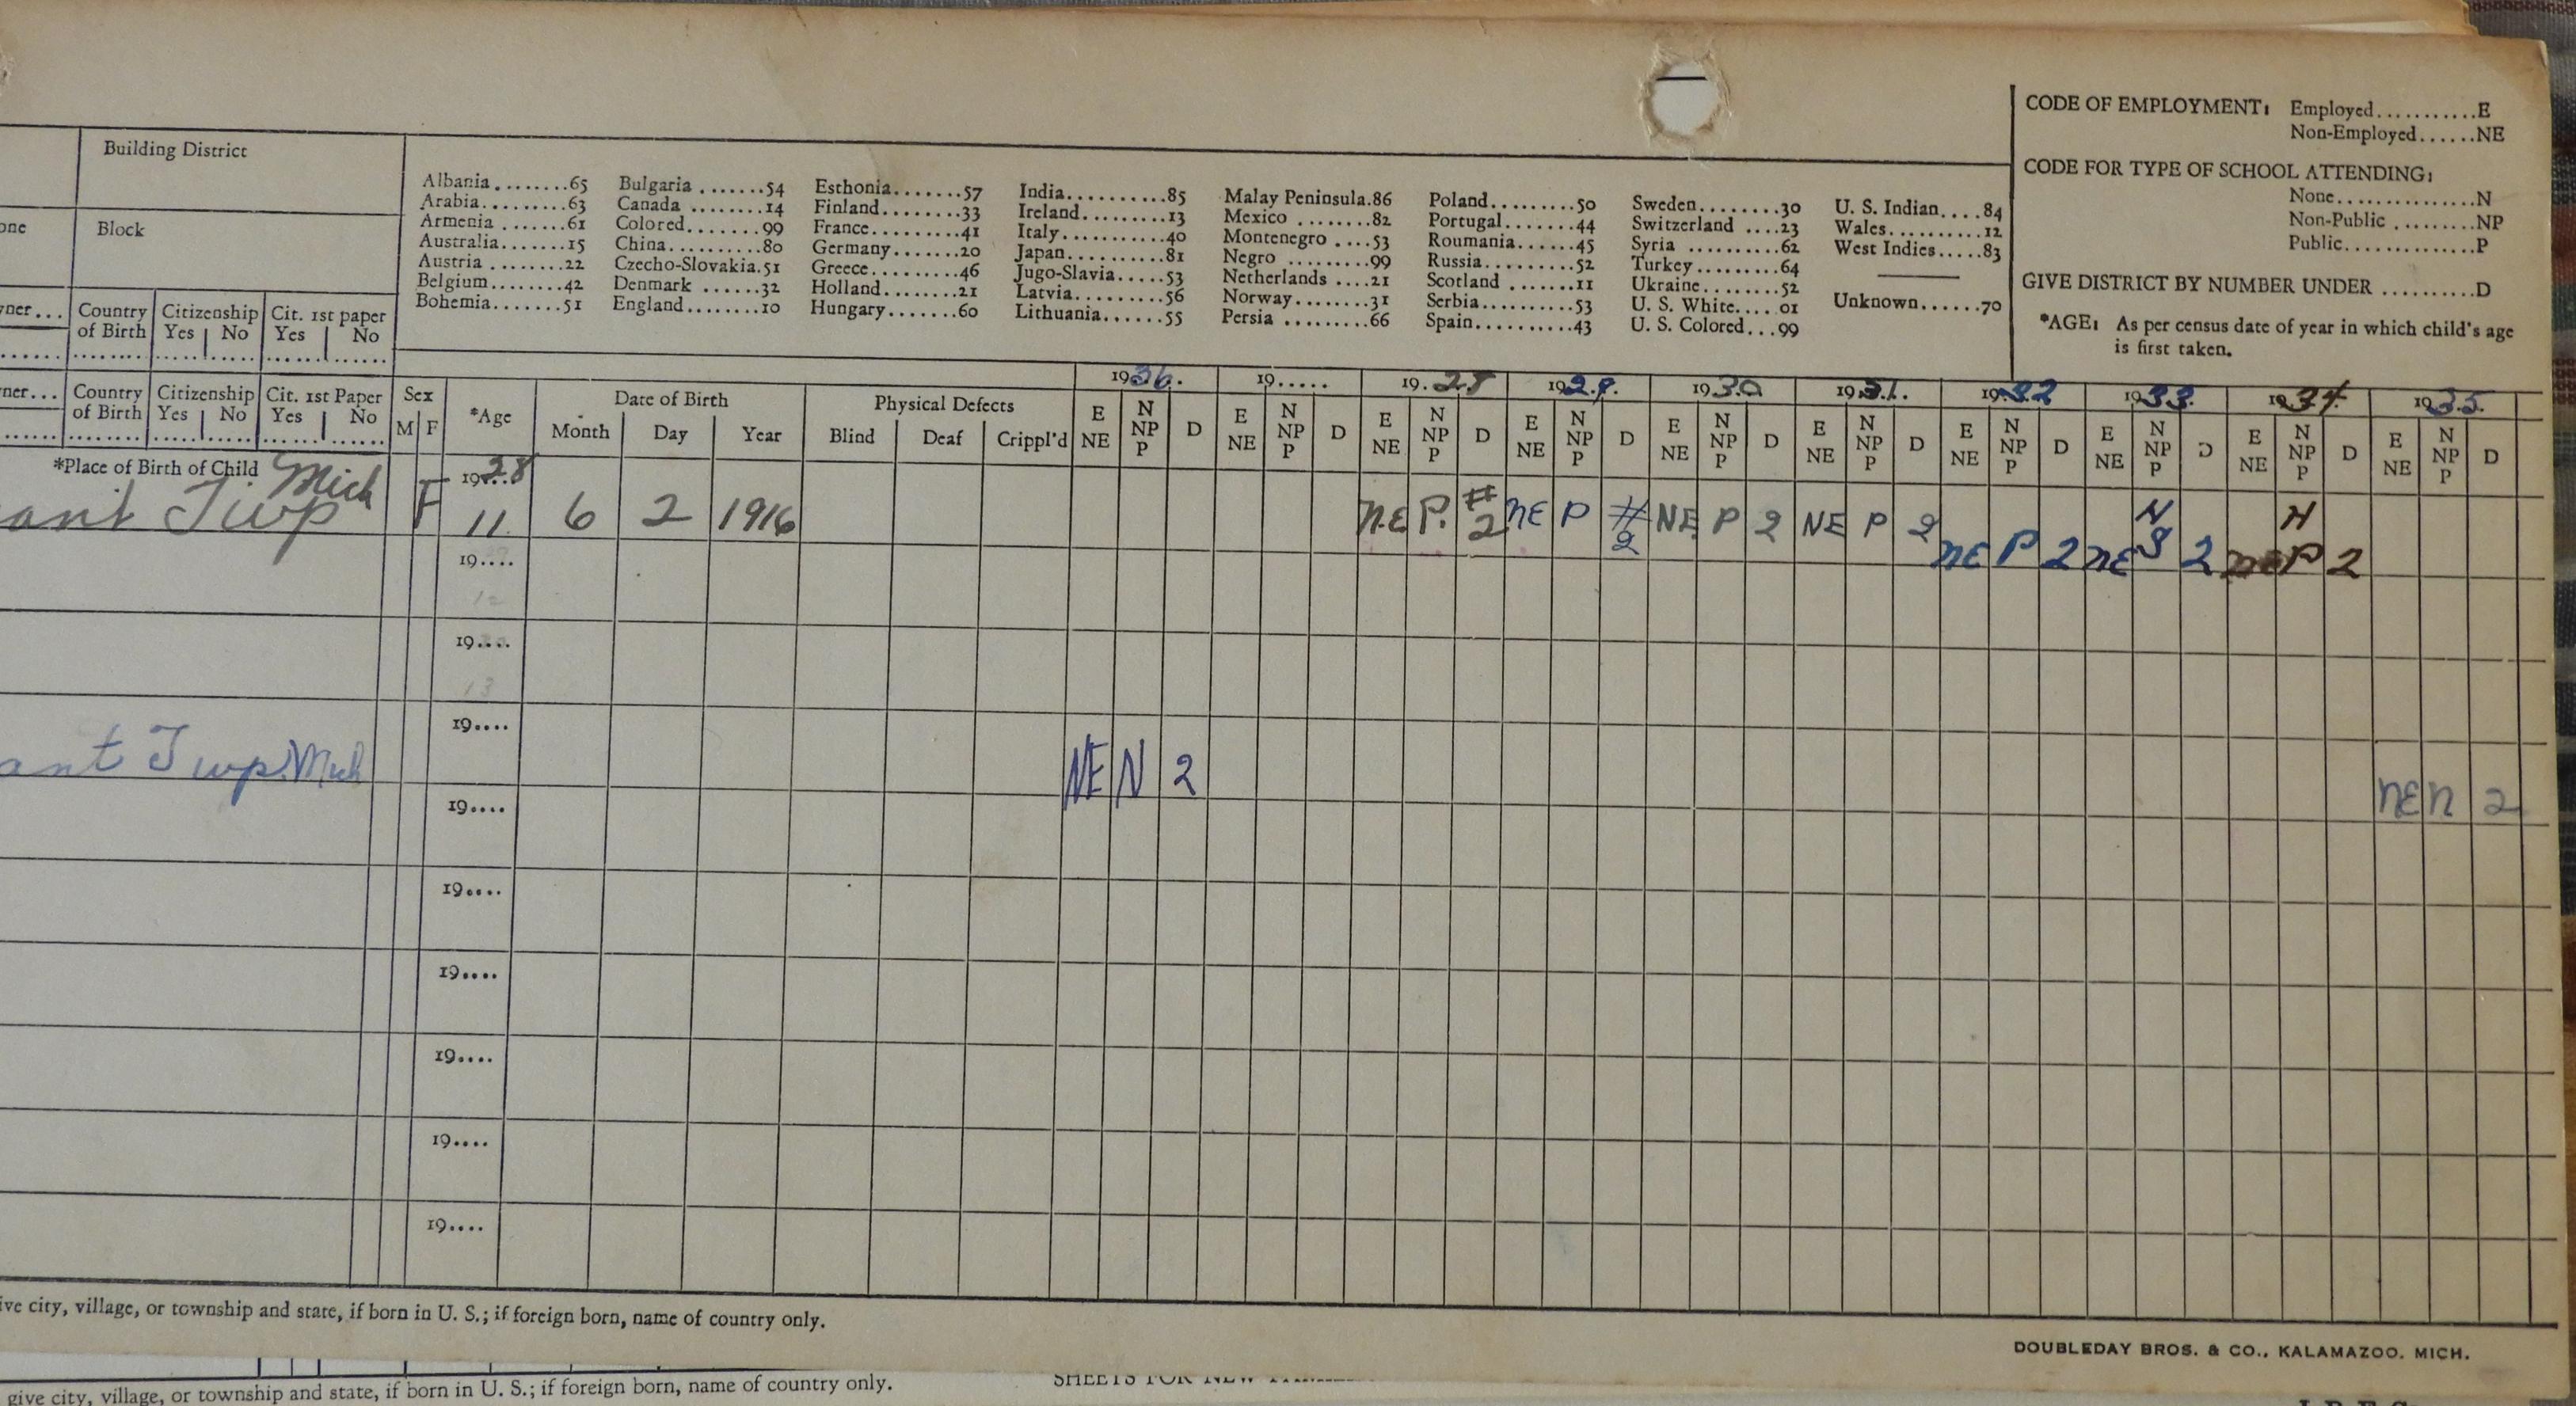 CODE OF EMPLOYMENT: Employed...........E
Non-Employed......NE
CODE FOR TYPE OF SCHOOL ATTENDING:
None...............N
Non-Public .........NP
Public..............P
GIVE DISTRICT BY NUMBER UNDER ..........D
*AGE: As per census date of year in which child's age
is first taken.
Building District
one Block
Albania.........65 Bulgaria .......54 Esthonia.......57 India..........85 Malay Peninsula.86 Poland.........50 Sweden........30 U. S. Indian....84
Arabia..........63 Canada ........14 Finland........33 Ireland.........13 Mexico ........82 Portugal.......44 Switzerland ....23 Wales..........12
Armenia ........61 Colored........99 France.........41 Italy...........40 Montenegro ....53 Roumania......45 Syria .........62 West Indies.....83
Australia.......15 China..........80 Germany.......20 Japan..........81 Negro .........99 Russia.........52 Turkey.........64
Austria ........22 Czecho-Slovakia.51 Greece.........46 Jugo-Slavia.....53 Netherlands ....21 Scotland .......11 Ukraine........52
Belgium........42 Denmark ......32 Holland.......21 Latvia.........56 Norway........31 Serbia.........53 U. S. White....01 Unknown......70
Bohemia.......51 England........10 Hungary.......60 Lithuania......55 Persia .........66 Spain..........43 U. S. Colored...99
ner... Country of Birth Citizenship Yes No Cit. 1st paper Yes No
ner... Country of Birth Citizenship Yes No Cit. 1st Paper Yes No
Sex M F *Age Date of Birth Month Day Year Physical Defects Blind Deaf Crippl'd
1936. 19..... 19.28 1929. 1930 1931. 1932 1933. 1934. 1935.
E NE N NP P D E NE N NP P D E NE N NP P D E NE N NP P D E NE N NP P D E NE N NP P D E NE N NP P D E NE N NP P D E NE N NP P D E NE N NP P D
*Place of Birth of Child Mich 1928
ant Twp F 11. 6 2 1916 N.E P. #2 NE P #2 NE P 2 NE P 2 NE P 2 NE N 2 NE H P 2
19....
12
19....
13
19....
ant Twp. Mich NE N 2
19.... NE N 2
19....
19....
19....
19....
19....
ive city, village, or township and state, if born in U. S.; if foreign born, name of country only.
DOUBLEDAY BROS. & CO., KALAMAZOO. MICH.
give city, village, or township and state, if born in U. S.; if foreign born, name of country only.
SHEETS FOR NEW